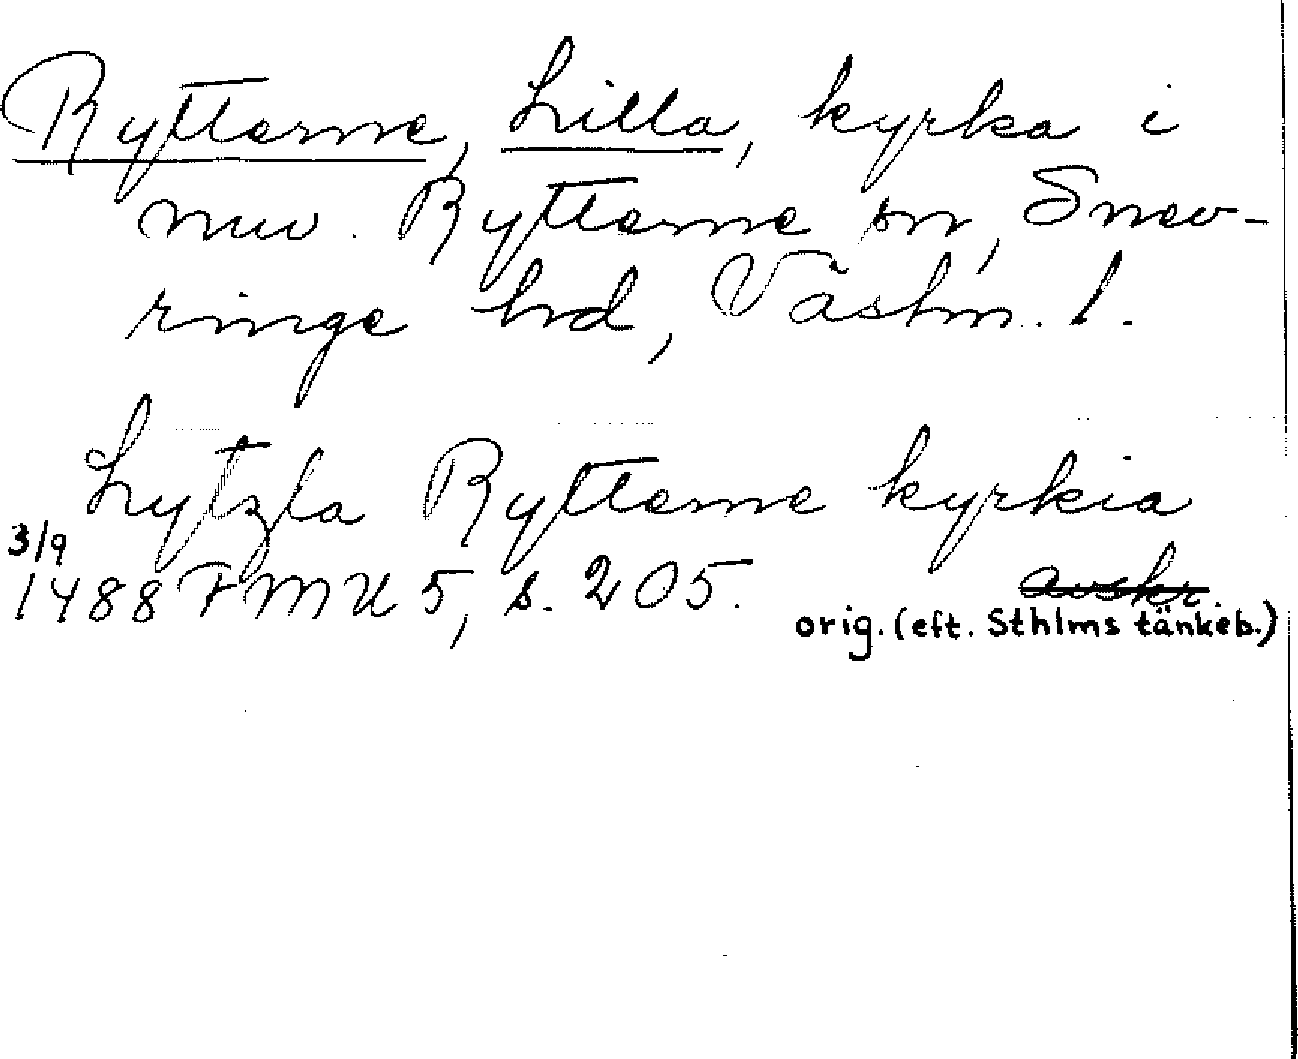 Rytterne, Lilla, kyrka i
nuv. Rytterne sn, Snev-
ringe hd, Västm. l.
Lytzla Rytterne kyrkia
3/9
1488 FMU 5, s. 205. avskr.
orig. (eft. Sthlms tänkeb.)